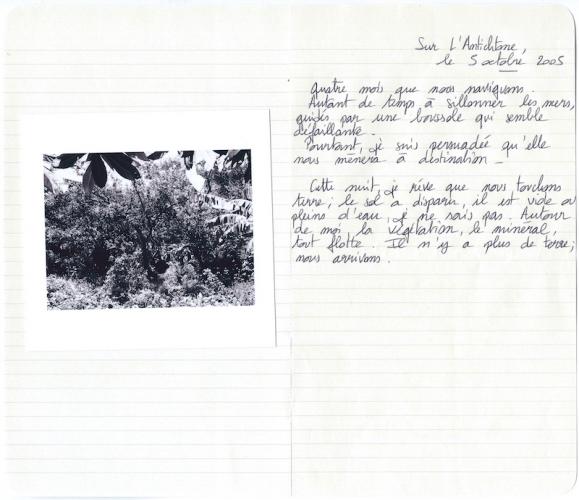 Sur L'Antichtone,
le 5 octobre 2005
Quatre mois que nous naviguons.
Autant de temps à sillonner les mers,
guidés par une boussole qui semble
défaillante.
Pourtant, je suis persuadée qu'elle
nous mènera à destination –
Cette nuit, je rêve que nous touchons
terre ; le sol a disparu, il est vide ou
pleins d'eau, je ne sais pas. Autour
de moi, la végétation, le minéral,
tout flotte. Il n'y a plus de terre,
nous arrivons.